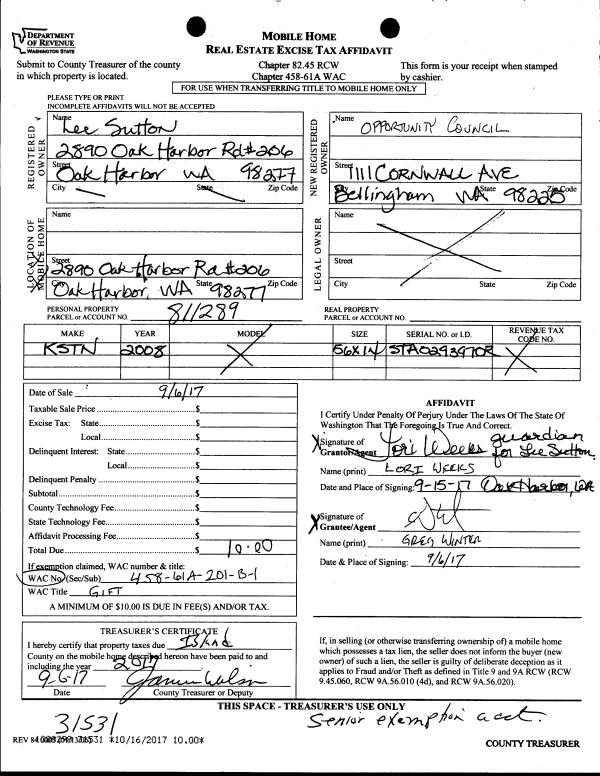 DEPARTMENT
OF REVENUE
WASHINGTON STATE
MOBILE HOME
REAL ESTATE EXCISE TAX AFFIDAVIT
Submit to County Treasurer of the county
in which property is located.
Chapter 82.45 RCW
Chapter 458-61A WAC
This form is your receipt when stamped
by cashier.
FOR USE WHEN TRANSFERRING TITLE TO MOBILE HOME ONLY
PLEASE TYPE OR PRINT
INCOMPLETE AFFIDAVITS WILL NOT BE ACCEPTED
REGISTERED
OWNER
Name
Lee Sutton
2890 Oak Harbor Rd #206
Street
Oak Harbor WA 98277
City State Zip Code
NEW REGISTERED
OWNER
Name
OPPORTUNITY COUNCIL
Street 1111 CORNWALL AVE
Bellingham WA 98225
State Zip Code
LOCATION OF
MOBILE HOME
Name
Street
2890 Oak Harbor Rd #206
Oak Harbor, WA 98277 Zip Code
LEGAL OWNER
Name
Street
City State Zip Code
PERSONAL PROPERTY
PARCEL or ACCOUNT NO. 811289
REAL PROPERTY
PARCEL or ACCOUNT NO.
MAKE YEAR MODEL SIZE SERIAL NO. or I.D. REVENUE TAX
CODE NO.
KSTN 2008 56X14 STA029397OR
Date of Sale 9/6/17
Taxable Sale Price $
Excise Tax: State $
Local $
Delinquent Interest: State $
Local $
Delinquent Penalty $
Subtotal $
County Technology Fee $
State Technology Fee $
Affidavit Processing Fee $
Total Due $ 10.00
If exemption claimed, WAC number & title:
WAC No. (Sec/Sub) 458-61A-201-B-1
WAC Title GIFT
A MINIMUM OF $10.00 IS DUE IN FEE(S) AND/OR TAX.
AFFIDAVIT
I Certify Under Penalty Of Perjury Under The Laws Of The State Of
Washington That The Foregoing Is True And Correct.
Signature of
Grantor/Agent Lori Weeks guardian
for Lee Sutton
Name (print) LORI WEEKS
Date and Place of Signing: 9-15-17 Oak Harbor, WA
Signature of
Grantee/Agent
Name (print) GREG WINTER
Date & Place of Signing: 9/6/17
TREASURER'S CERTIFICATE
I hereby certify that property taxes due Island
County on the mobile home described hereon have been paid to and
including the year 2017
9-6-17
Date County Treasurer or Deputy
If, in selling (or otherwise transferring ownership of) a mobile home
which possesses a tax lien, the seller does not inform the buyer (new
owner) of such a lien, the seller is guilty of deliberate deception as it
applies to Fraud and/or Theft as defined in Title 9 and 9A RCW (RCW
9.45.060, RCW 9A.56.010 (4d), and RCW 9A.56.020).
THIS SPACE - TREASURER'S USE ONLY
31531
Senior exemption acct.
REV 84 31531 *10/16/2017 10.00*
COUNTY TREASURER